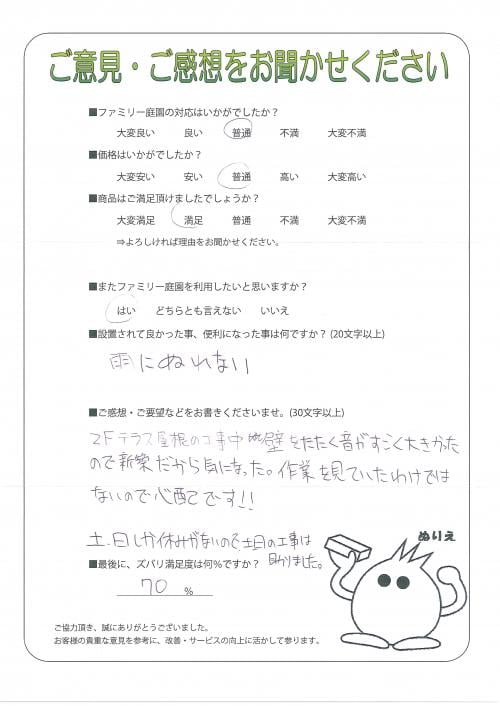 ご意見・ご感想をお聞かせください
■ファミリー庭園の対応はいかがでしたか？
大変良い　良い　普通　不満　大変不満
■価格はいかがでしたか？
大変安い　安い　普通　高い　大変高い
■商品はご満足頂けましたでしょうか？
大変満足　満足　普通　不満　大変不満
⇒よろしければ理由をお聞かせください。
■またファミリー庭園を利用したいと思いますか？
はい　どちらとも言えない　いいえ
■設置されて良かった事、便利になった事は何ですか？(20文字以上)
雨にぬれない
■ご感想・ご要望などをお書きくださいませ。(30文字以上)
2Fテラス屋根の工事中 壁をたたく音がすごく大きかった
ので新築だから気になった。作業を見ていたわけでは
ないので心配です!!
土、日しか休みがないので土日の工事は
助りました。
■最後に、ズバリ満足度は何%ですか？
70 %
ぬりえ
ご協力頂き、誠にありがとうございました。
お客様の貴重な意見を参考に、改善・サービスの向上に活かして参ります。